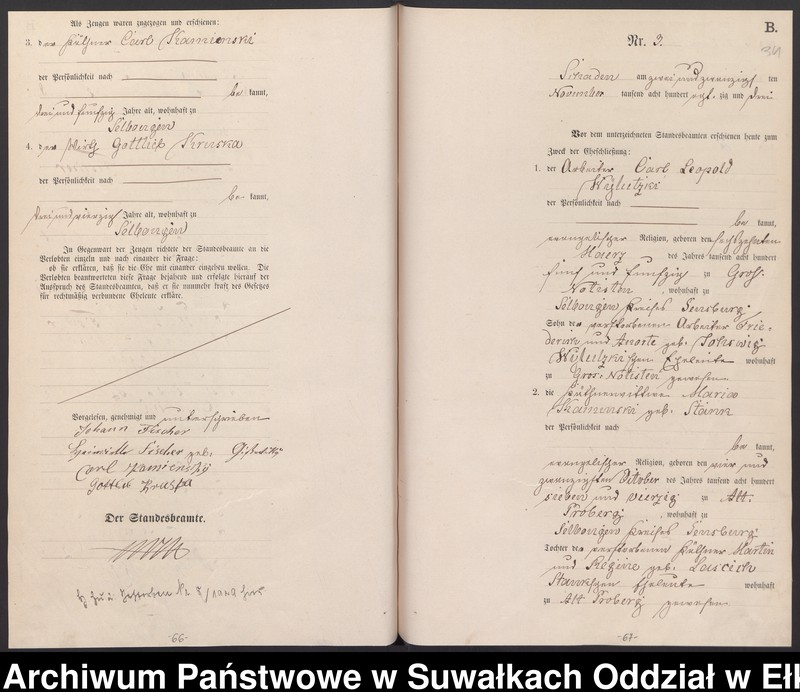 Als Zeugen waren zugezogen und erschienen:
3. der Käthner Carl Kamienski
der Persönlichkeit nach
be kannt,
drei und fünfzig Jahre alt, wohnhaft zu
Selbongen
4. der Wirth Gottlieb Kruska
der Persönlichkeit nach
be kannt,
drei und vierzig Jahre alt, wohnhaft zu
Selbongen
In Gegenwart der Zeugen richtete der Standesbeamte an die
Verlobten einzeln und nach einander die Frage:
ob sie erklären, daß sie die Ehe mit einander eingehen wollen. Die
Verlobten beantworteten diese Frage bejahend und erfolgte hierauf der
Ausspruch des Standesbeamten, daß er sie nunmehr kraft des Gesetzes
für rechtmäßig verbundene Eheleute erkläre.
Vorgelesen, genehmigt und unterschrieben
Johann Fischer
Fischer geb.
Carl Kamiensky
Gottlieb Kruska
Der Standesbeamte.
-66-
B.
Nr. 3.
am zwei und zwanzigs ten
November tausend acht hundert acht zig und drei
Vor dem unterzeichneten Standesbeamten erschienen heute zum
Zweck der Eheschließung:
1. der Arbeiter Carl Leopold
Wylutzki
der Persönlichkeit nach
be kannt,
evangelischer Religion, geboren den sechszehnten
Maerz des Jahres tausend acht hundert
fünf und fünfzig zu Groß
Notisten, wohnhaft zu
Selbongen Kreises Sensburg
Sohn des verstorbenen Arbeiter Frie-
derich und Anorte geb.
Wylutzkischen Eheleute wohnhaft
zu Gros. Notisten gewesen
2. die Käthnerwittwe Maria
Kamienski geb. Stann
der Persönlichkeit nach
be kannt,
evangelischer Religion, geboren den vier und
zwanzigsten October des Jahres tausend acht hundert
sieben und vierzig zu Alt.
Proberg, wohnhaft zu
Selbongen Kreises Sensburg
Tochter des verstorbenen Käthner Martin
und Regine geb.
Eheleute wohnhaft
zu Alt Proberg gewesen
-67-
Archiwum Państwowe w Suwałkach Oddział w Ełk